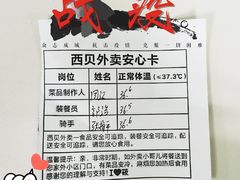 战疫
众志成城 抗击疫情 克服一切困难
西贝外卖安心卡
岗位 姓名 正常体温(≤37.3℃)
菜品制作人 36.6
装餐员 36.5
骑手 36.6
西贝外卖—食品安全可追踪,装餐安全可追踪,配
送安全可追踪,请您放心食用。
温馨提示:亲,非常时期,如外卖小哥儿将餐送到
您家外小区门口,有菜品变凉,麻烦您加热后食用
感谢您的理解与支持!I❤莜